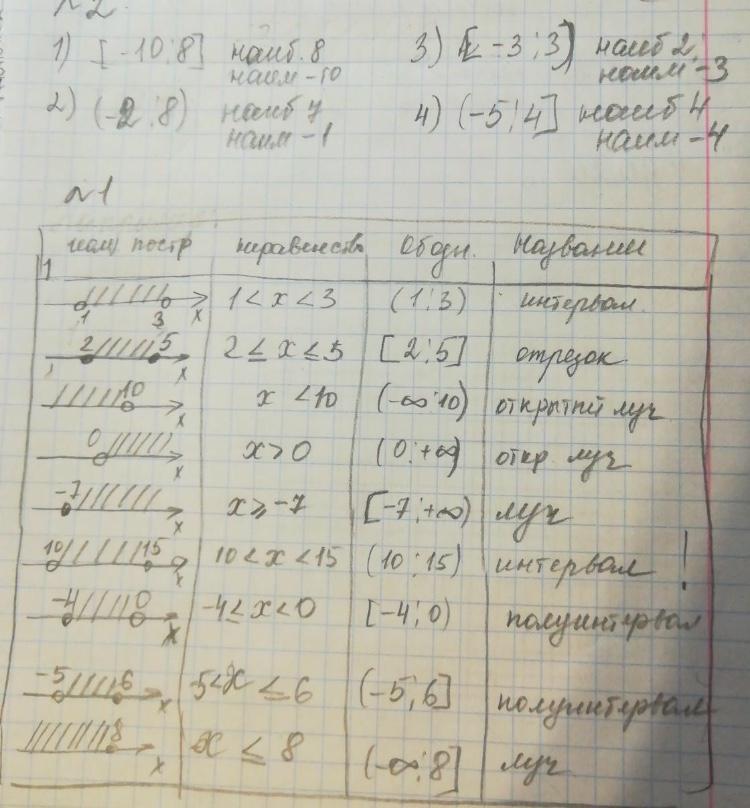 №2
1) [-10;8] наиб. 8 3) [-3;3) наиб 2;
наим -10 наим -3
2) (-2;8) наиб 7 4) (-5;4] наиб 4
наим -1 наим -4
№1
постр неравенство Обозн. Название
1 3 x 1<x<3 (1;3) интервал.
2 5 x 2≤x≤5 [2;5] отрезок
10 x x<10 (-∞;10) открытый луч
0 x x>0 (0;+∞) откр. луч
-7 x x≥-7 [-7;+∞) луч
10 15 x 10<x<15 (10;15) интервал !
-4 0 x -4≤x<0 [-4;0) полуинтервал
-5 6 x 5<x≤6 (-5;6] полуинтервал
8 x x≤8 (-∞;8] луч